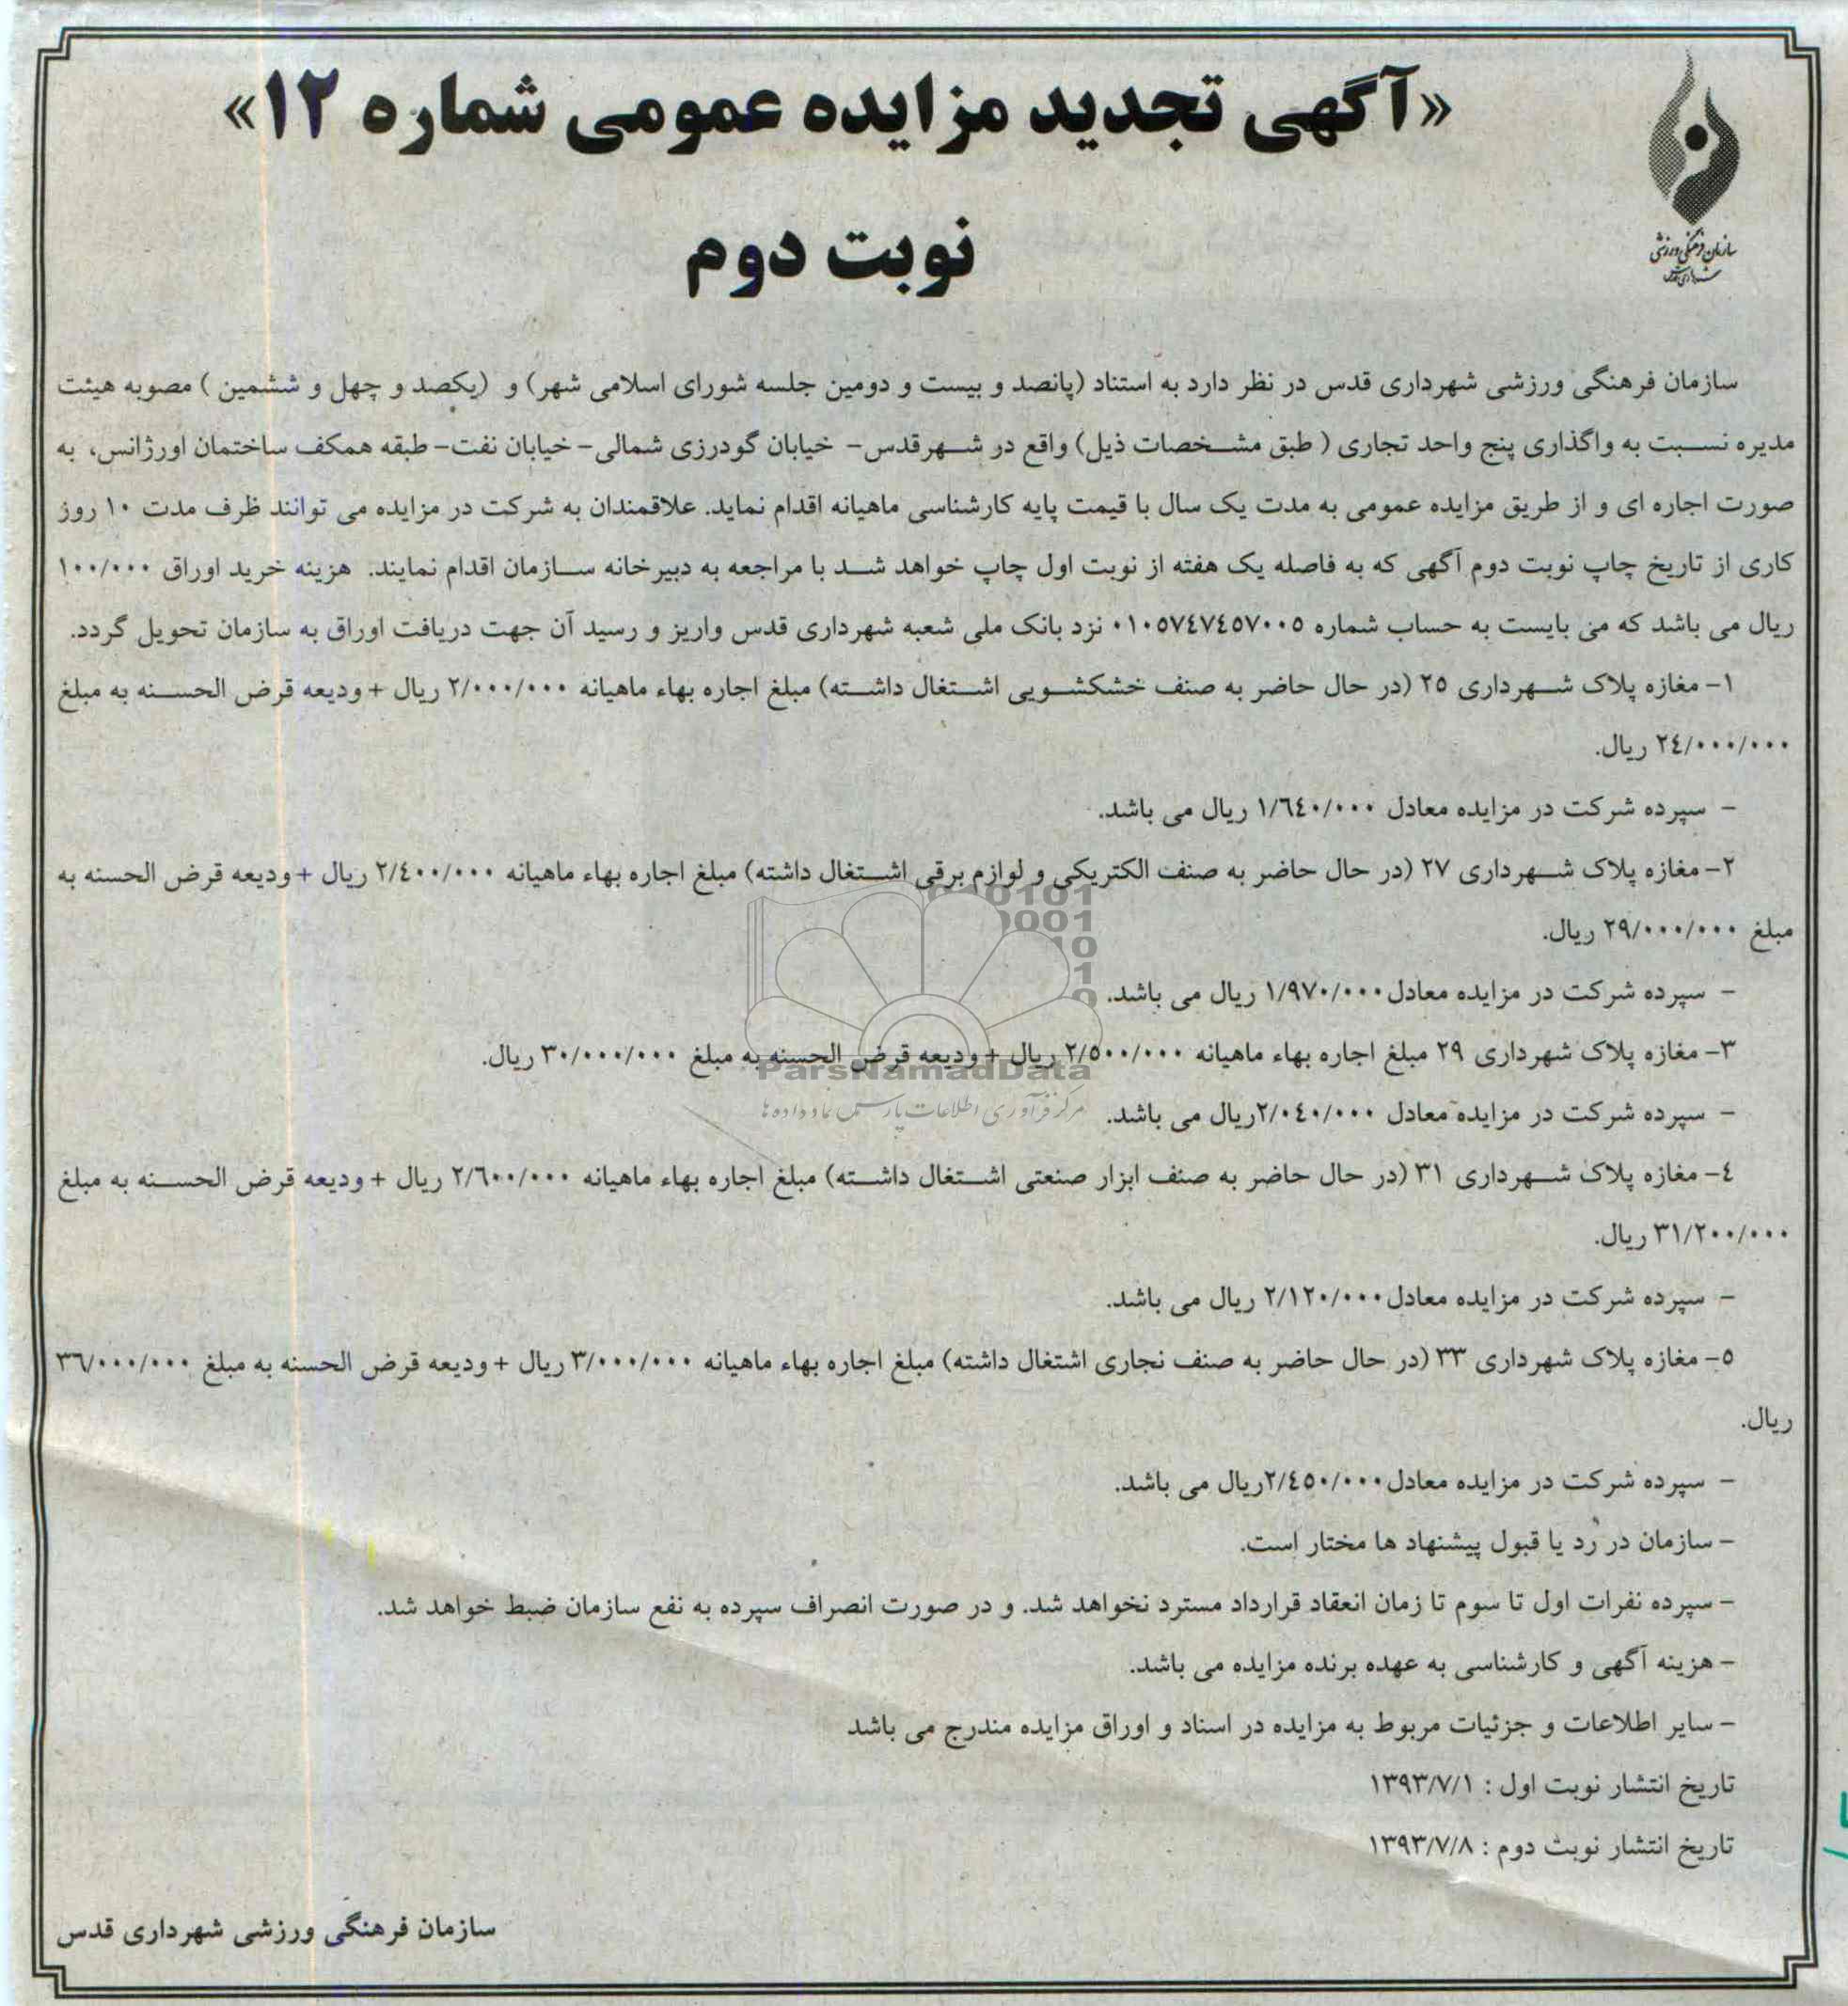 «آگهی تجدید مزایده عمومی شماره ۱۲»
نوبت دوم
سازمان فرهنگی ورزشی
سازمان فرهنگی ورزشی شهرداری قدس در نظر دارد به استناد (پانصد و بیست و دومین جلسه شورای اسلامی شهر) و (یکصد و چهل و ششمین ) مصوبه هیئت
مدیره نسبت به واگذاری پنج واحد تجاری ( طبق مشخصات ذیل) واقع در شهرقدس- خیابان گودرزی شمالی- خیابان نفت- طبقه همکف ساختمان اورژانس، به
صورت اجاره ای و از طریق مزایده عمومی به مدت یک سال با قیمت پایه کارشناسی ماهیانه اقدام نماید. علاقمندان به شرکت در مزایده می توانند ظرف مدت ۱۰ روز
کاری از تاریخ چاپ نوبت دوم آگهی که به فاصله یک هفته از نوبت اول چاپ خواهد شد با مراجعه به دبیرخانه سازمان اقدام نمایند. هزینه خرید اوراق ۱۰۰/۰۰۰
ریال می باشد که می بایست به حساب شماره ۰۱۰۵۷٤۷٤۵۷۰۰۵ نزد بانک ملی شعبه شهرداری قدس واریز و رسید آن جهت دریافت اوراق به سازمان تحویل گردد.
۱- مغازه پلاک شهرداری ۲۵ (در حال حاضر به صنف خشکشویی اشتغال داشته) مبلغ اجاره بهاء ماهیانه ۲/۰۰۰/۰۰۰ ریال + ودیعه قرض الحسنه به مبلغ
۲٤/۰۰۰/۰۰۰ ریال.
- سپرده شرکت در مزایده معادل ۱/٦٤۰/۰۰۰ ریال می باشد.
۲- مغازه پلاک شهرداری ۲۷ (در حال حاضر به صنف الکتریکی و لوازم برقی اشتغال داشته) مبلغ اجاره بهاء ماهیانه ۲/٤۰۰/۰۰۰ ریال +ودیعه قرض الحسنه به
مبلغ ۲۹/۰۰۰/۰۰۰ ریال.
- سپرده شرکت در مزایده معادل۱/۹۷۰/۰۰۰ ریال می باشد.
۳- مغازه پلاک شهرداری ۲۹ مبلغ اجاره بهاء ماهیانه ۲/۵۰۰/۰۰۰ ریال + ودیعه قرض الحسنه به مبلغ ۳۰/۰۰۰/۰۰۰ ریال.
ParsNamadData
مرکز فرآوری اطلاعات پارس نماد داده ها
- سپرده شرکت در مزایده معادل ۲/۰٤۰/۰۰۰ریال می باشد.
٤- مغازه پلاک شهرداری ۳۱ (در حال حاضر به صنف ابزار صنعتی اشتغال داشته) مبلغ اجاره بهاء ماهیانه ۲/٦۰۰/۰۰۰ ریال + ودیعه قرض الحسنه به مبلغ
۳۱/۲۰۰/۰۰۰ ریال.
- سپرده شرکت در مزایده معادل۲/۱۲۰/۰۰۰ ریال می باشد.
۵- مغازه پلاک شهرداری ۳۳ (در حال حاضر به صنف نجاری اشتغال داشته) مبلغ اجاره بهاء ماهیانه ۳/۰۰۰/۰۰۰ ریال + ودیعه قرض الحسنه به مبلغ ۳٦/۰۰۰/۰۰۰
ریال.
- سپرده شرکت در مزایده معادل۲/٤۵۰/۰۰۰ریال می باشد.
- سازمان در رد یا قبول پیشنهاد ها مختار است.
- سپرده نفرات اول تا سوم تا زمان انعقاد قرارداد مسترد نخواهد شد. و در صورت انصراف سپرده به نفع سازمان ضبط خواهد شد.
- هزینه آگهی و کارشناسی به عهده برنده مزایده می باشد.
- سایر اطلاعات و جزئیات مربوط به مزایده در اسناد و اوراق مزایده مندرج می باشد
تاریخ انتشار نوبت اول : ۱۳۹۳/۷/۱
تاریخ انتشار نوبت دوم : ۱۳۹۳/۷/۸
سازمان فرهنگی ورزشی شهرداری قدس